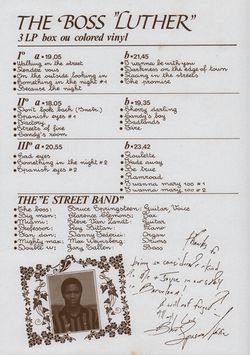 THE BOSS "LUTHER"
3 LP box ou colored vinyl
I° a • 19,05
• Walking in the street
• Rendez vous
• On the outside looking in
• Something in the night #1
• Because the night
b • 21,45
• I wanna be with you
• Darkness on the edge of town
• Racing in the streets
• The promise
II° a • 18,05
• Don't look back (Instr.)
• Spanish eyes #1
• Factory
• Streets of fire
• Candy's room
b • 19,35
• Cherry darling
• Candy's boy
• Badlands
• Fire
III° a • 20,55
• Bad eyes
• Something in the night #2
• Spanish eyes #2
b • 23,42
• Roulette
• Held away
• Be true
• Ramrod
• I wanna mary too #1
• I wanna mary too #2
THE "E STREET BAND"
The boss: Bruce Springsteen: Guitar Voice
Big man: Clarence Clemons: Sax
Miami: Steve Van Zandt: Guitar
Professor: Roy Bittan: Piano
Dan dan: Danny Federici: Organ
Mighty max: Max Weinberg: Drums
Double w: Gary Tallent: Bass
Thanks to
being so considerate
in
Barcelona
I will not forget
Bruce Springsteen